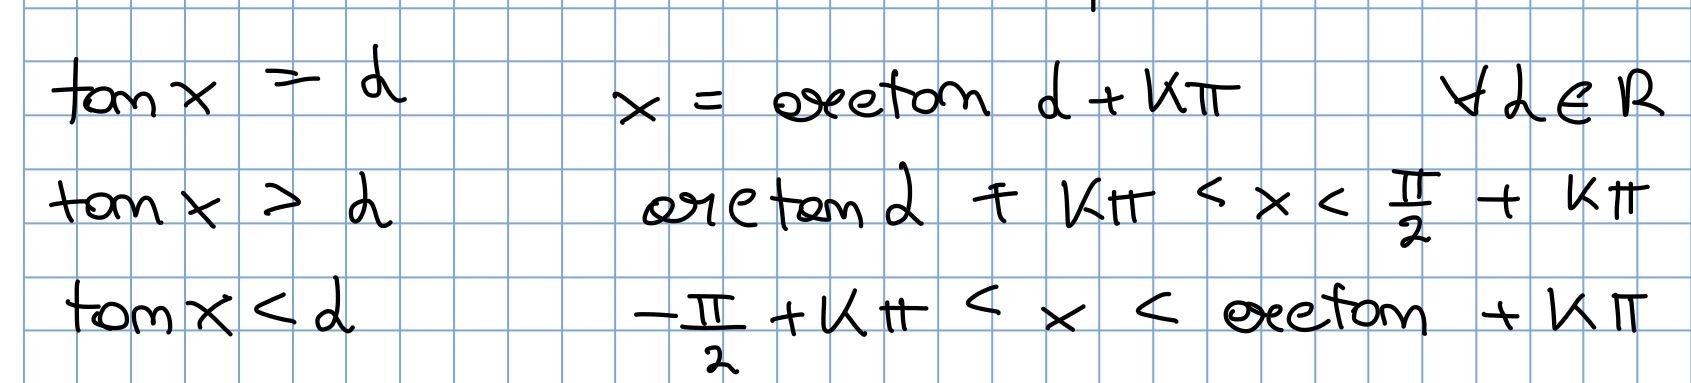 tan x = d x = arctan d + kπ ∀d∈R
tan x > d arctan d + kπ < x < π/2 + kπ
tan x < d -π/2 + kπ < x < arctan + kπ